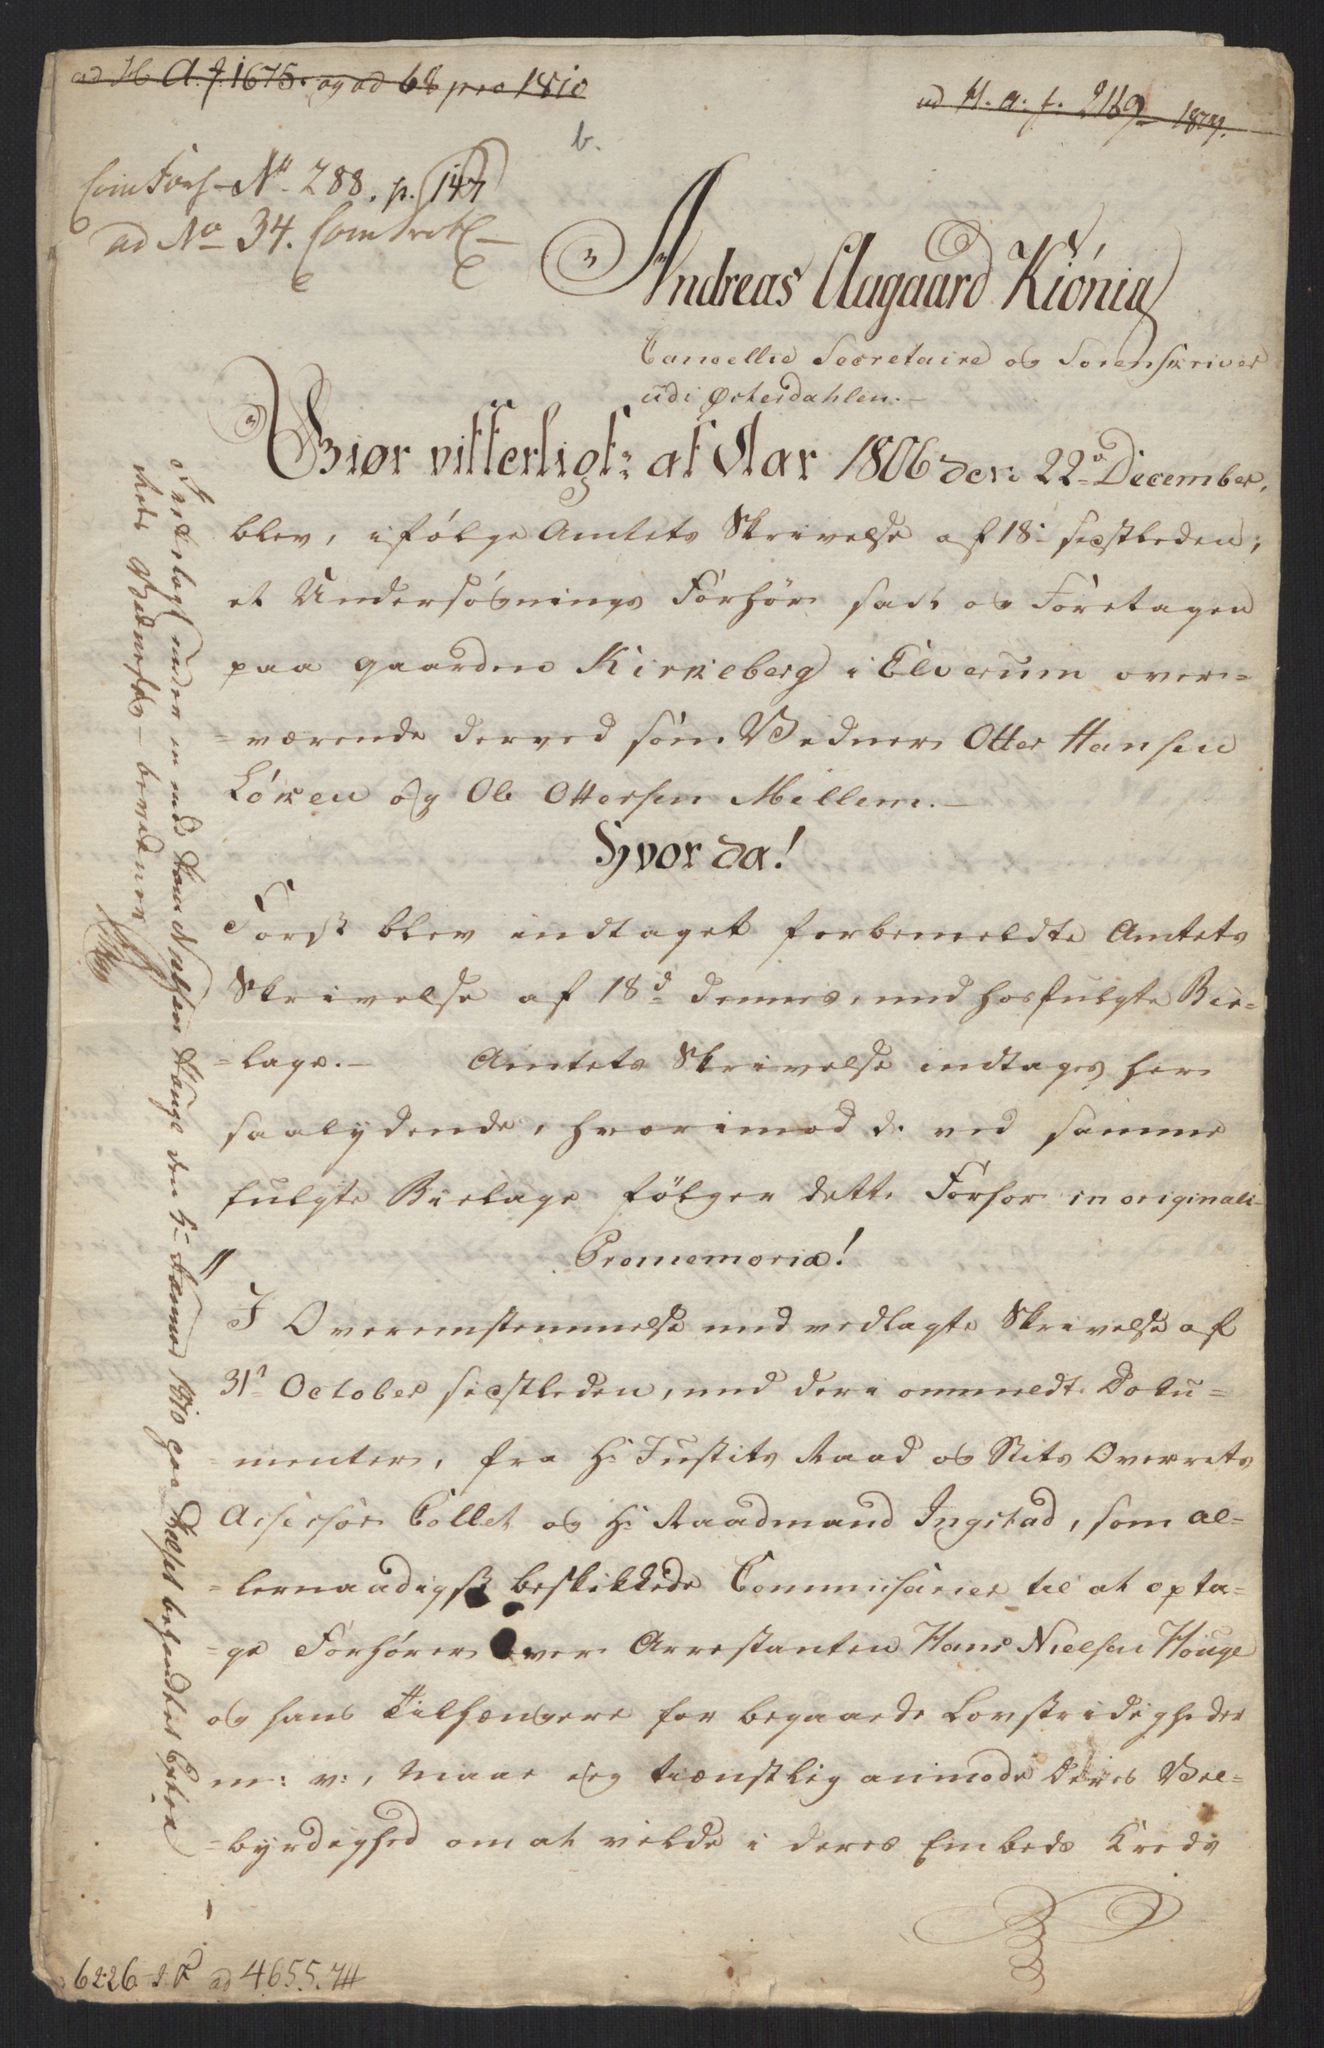 ad H. A. f. 1675. og ad 68 pro 1810
ad H. a. f. 2169
b.
Com Forh. No. 288. p. 147
ad No 34.
Andreas Aagaard Kiönig
Cancellie Secretaire og Sorenskriver
udi Østerdahlen.—
Giør vitterligt: at Aar 1806 den 22de December,
blev, ifølge Amtets Skrivelse af 18de sidstleden,
et Undersøgnings Forhør sadt og Foretagen
paa gaarden Kirkeberg i Elverum over-
-værende derved som Vidner Otter Hansen
Løken og Ole Ottersen Mellem.—
Hvor da!
Først blev indtaget forbemeldte Amtets
Skrivelse af 18d dennes, med hosfulgte Bie-
-lage.— Amtets Skrivelse indtages her
saalydende, hvorimod de ved samme
fulgte Bielage følger dette Forhør in originali-
Promemoria!
I Overeenstemmelse med vedlagte Skrivelse af
31te October sidstleden, med deri ommeldte Doku-
-menter, fra Hr Justits Raad og Stifts Overrets
Assessor Collet og Hr Raadmand Ingstad, som al-
-lernaadigst beskikkede Commissarier til at opta-
-ge Forhører over Arrestanten Hans Nielsen Houge
og hans Tilhængere for begaaede Lovstridigheder
m: v:, maae ieg tienstlig anmode Deres Vel-
-byrdighed om at vilde i deres Embeds Kreds
Fremlagt under en med Hans Nielsen Hauge den 5te 1810 paa holdt Extra
Rets bevidner
6226. ad 4655.